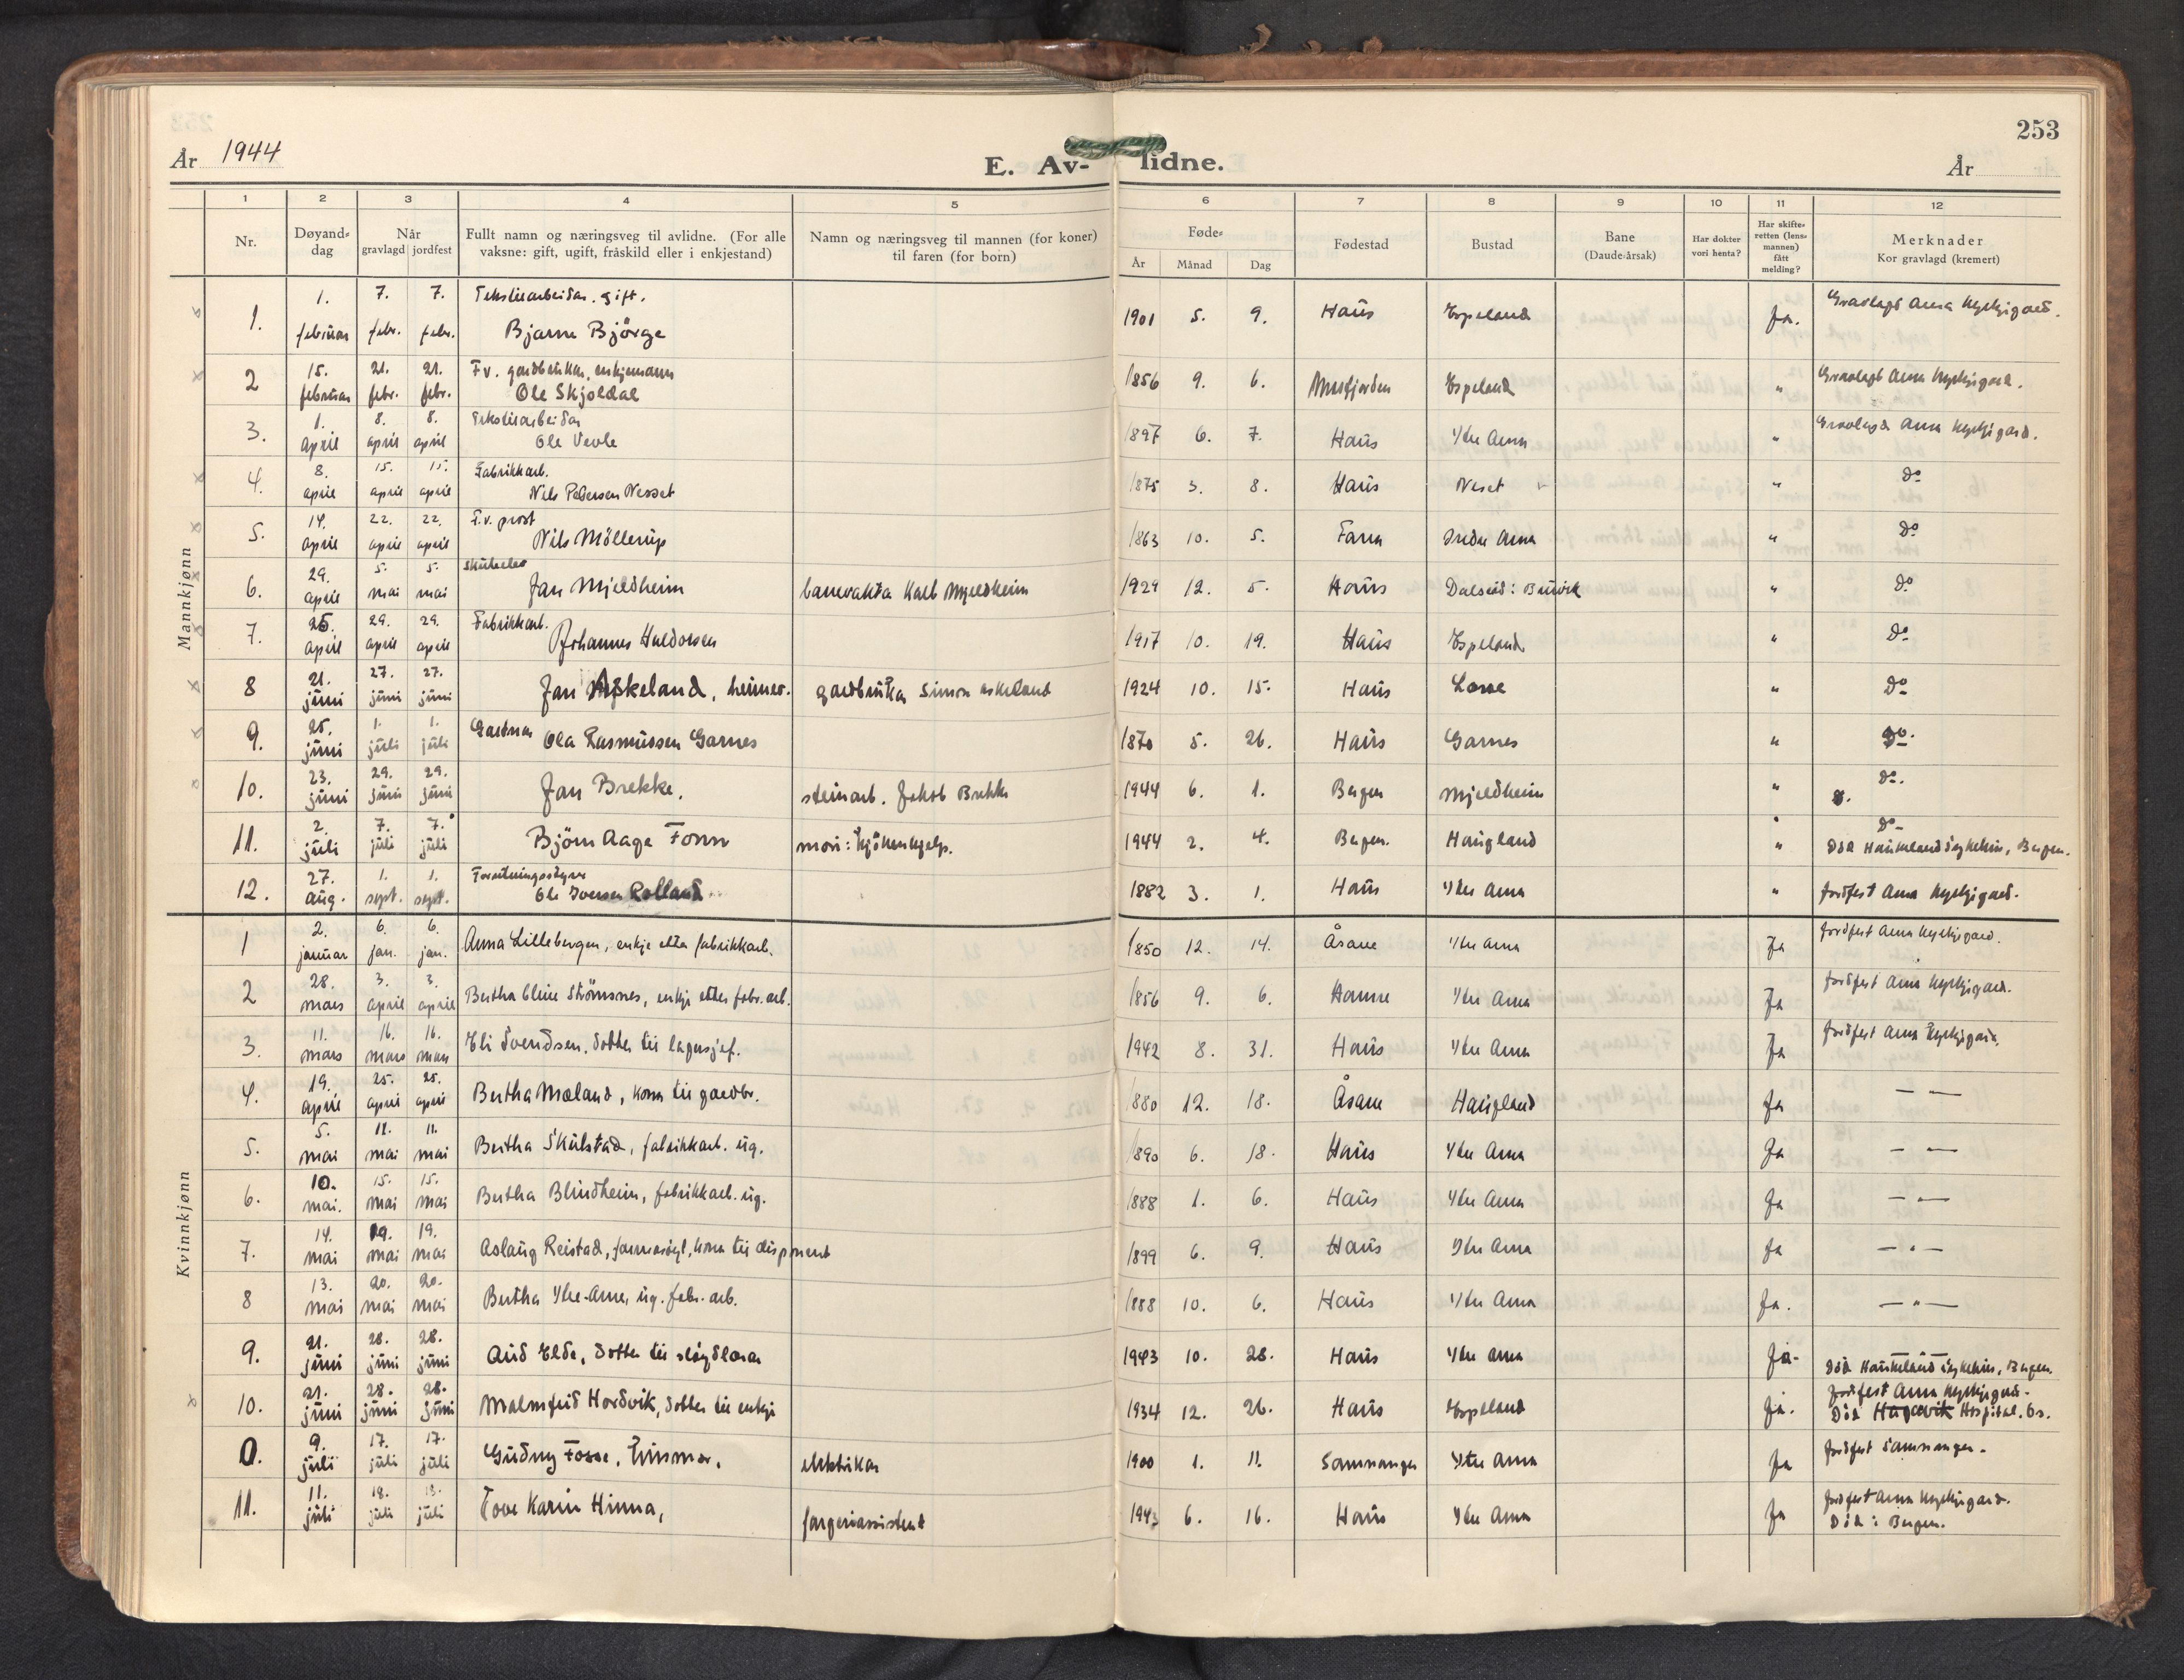 253
År 1944
E. Av- lidne.
År
1 2 3 4 5 6 7 8 9 10 11 12
Nr. Døyand-dag Når gravlagd jordfest Fullt namn og næringsveg til avlidne. (For alle vaksne: gift, ugift, fråskild eller i enkjestand) Namn og næringsveg til mannen (for koner) til faren (for born) Føde- År Månad Dag Fødestad Bustad Bane (Daude-årsak) Har dokter vori henta? Har skifte-retten (lens-mannen) fått melding? Merknader Kor gravlagd (kremert)
Mannkjønn
1. 1. februar 7. febr. 7. febr. Tekstilarbeidar. gift. Bjarne Björge 1901 5. 9. Haus Espeland Ja. Gravlagt Arna kyrkjegard.
2 15. februar 21. febr. 21. febr. Fv. gardbrukar, enkjemann Ole Skjoldal 1856 9. 6. Espeland " Gravlagt Arna kyrkjegard.
3. 1. april 8. april 8. april Tekstilarbeidar Ole Vevle 1897 6. 7. Haus Ytre Arna " Gravlagd Arna kyrkjegard.
4. 8. april 15. april 15. april Fabrikkarb. Nils Pedersen Nesset 1875 3. 8. Haus Neset " do
5. 14. april 22. april 22. april F.v. prost Nils Möllerup 1863 10. 5. Fana Indre Arna " do
6. 29. april 5. mai 5. mai skuleelev Jan Mjeldheim banevakta Karl Mjeldheim 1929 12. 5. Haus Dalseid: Bruvik " do
7. 25. april 29. april 29. april Fabrikkarb. Johannes Haldorsen 1917 10. 19. Haus Espeland " do
8 21. juni 27. juni 27. juni Jan Askeland, heimev. gardbrukar Simon Askeland 1924 10. 15. Haus Lone " Do
9. 25. juni 1. juli 1. juli Gardman Ola Rasmussen Garnes 1870 5. 26. Haus Garnes " do.
10. 23. juni 29. juni 29. juni Jan Brekke. steinarb. Jakob Brekke 1944 6. 1. Bergen Mjeldheim " do.
11. 2. juli 7. juli 7. juli Björn Aage Fonn mor: kjökenhjelp. 1944 2. 4. Bergen. Haugland " do Död Haukeland sjukehus, Bergen.
12. 27. aug. 1. sept. 1. sept. Forretningsstyrar Ole Iversen Rolland 1882 3. 1. Haus Ytre Arna " Jordfest Arna kyrkjegard.
Kvinnkjønn
1 2. januar 6. jan. 6. jan. Anna Lillebergen, enkje etter fabrikkarb. 1850 12. 14. Åsane Ytre Arna Ja Jordfest Arna kyrkjegard.
2 28. mars 3. april 3. april Bertha Oline Strömsnes, enkje etter fabr.arb. 1856 9. 6. Hamre Ytre Arna Ja Jordfest Arna kyrkjegard.
3. 11. mars 16. mars 16. mars Eli Svendsen, dotter til lagersjef. 1942 8. 31. Haus Ytre Arna Ja Jordfest Arna kyrkjegard.
4. 19. april 25. april 25. april Bertha Mæland, kona til gardbr. 1880 12. 18. Åsane Haugland Ja — —
5. 5. mai 11. mai 11. mai Bertha Skulstad, fabrikkarb. ug. 1890 6. 18. Haus Ytre Arna Ja — —
6. 10. mai. 15. mai 15. mai Bertha Blindheim, fabrikkarb. ug. 1888 1. 6. Haus Ytre Arna Ja — " —
7. 14. mai 19. mai 19. mai Aslaug Reistad, kona til disponent 1899 6. 9. Haus Ytre Arna Ja — " —
8 13. mai 20. mai 20. mai Bertha Ytre-Arne, ug. fabr. arb. 1888 10. 6. Haus Ytre Arna Ja. — " —
9. 21. juni 28. juni 28. juni Aud Elde, dotter til slöydlærar 1943 10. 28. Haus Ytre Arna Ja. — " — Död Haukeland sjukehus, Bergen.
10. 21. juni 28. juni 28. juni Malmfrid Hordvik, dotter til enkje 1934 12. 26. Haus Espeland Ja. Jordfest Arna kyrkjegard. Död Hagavik Hospital. Os.
0. 9. juli 17. juli 17. juli Gudny Fosse, husmor, elektrikar 1900 1. 11. Samnanger Ytre Arna Ja Jordfest Samnanger.
11. 11. juli 18. juli 18. juli Tove Karin Hinna, fargeriassistent 1943 6. 16. Haus Ytre Arna Ja Jordfest Arna kyrkjegard. Död i Bergen.